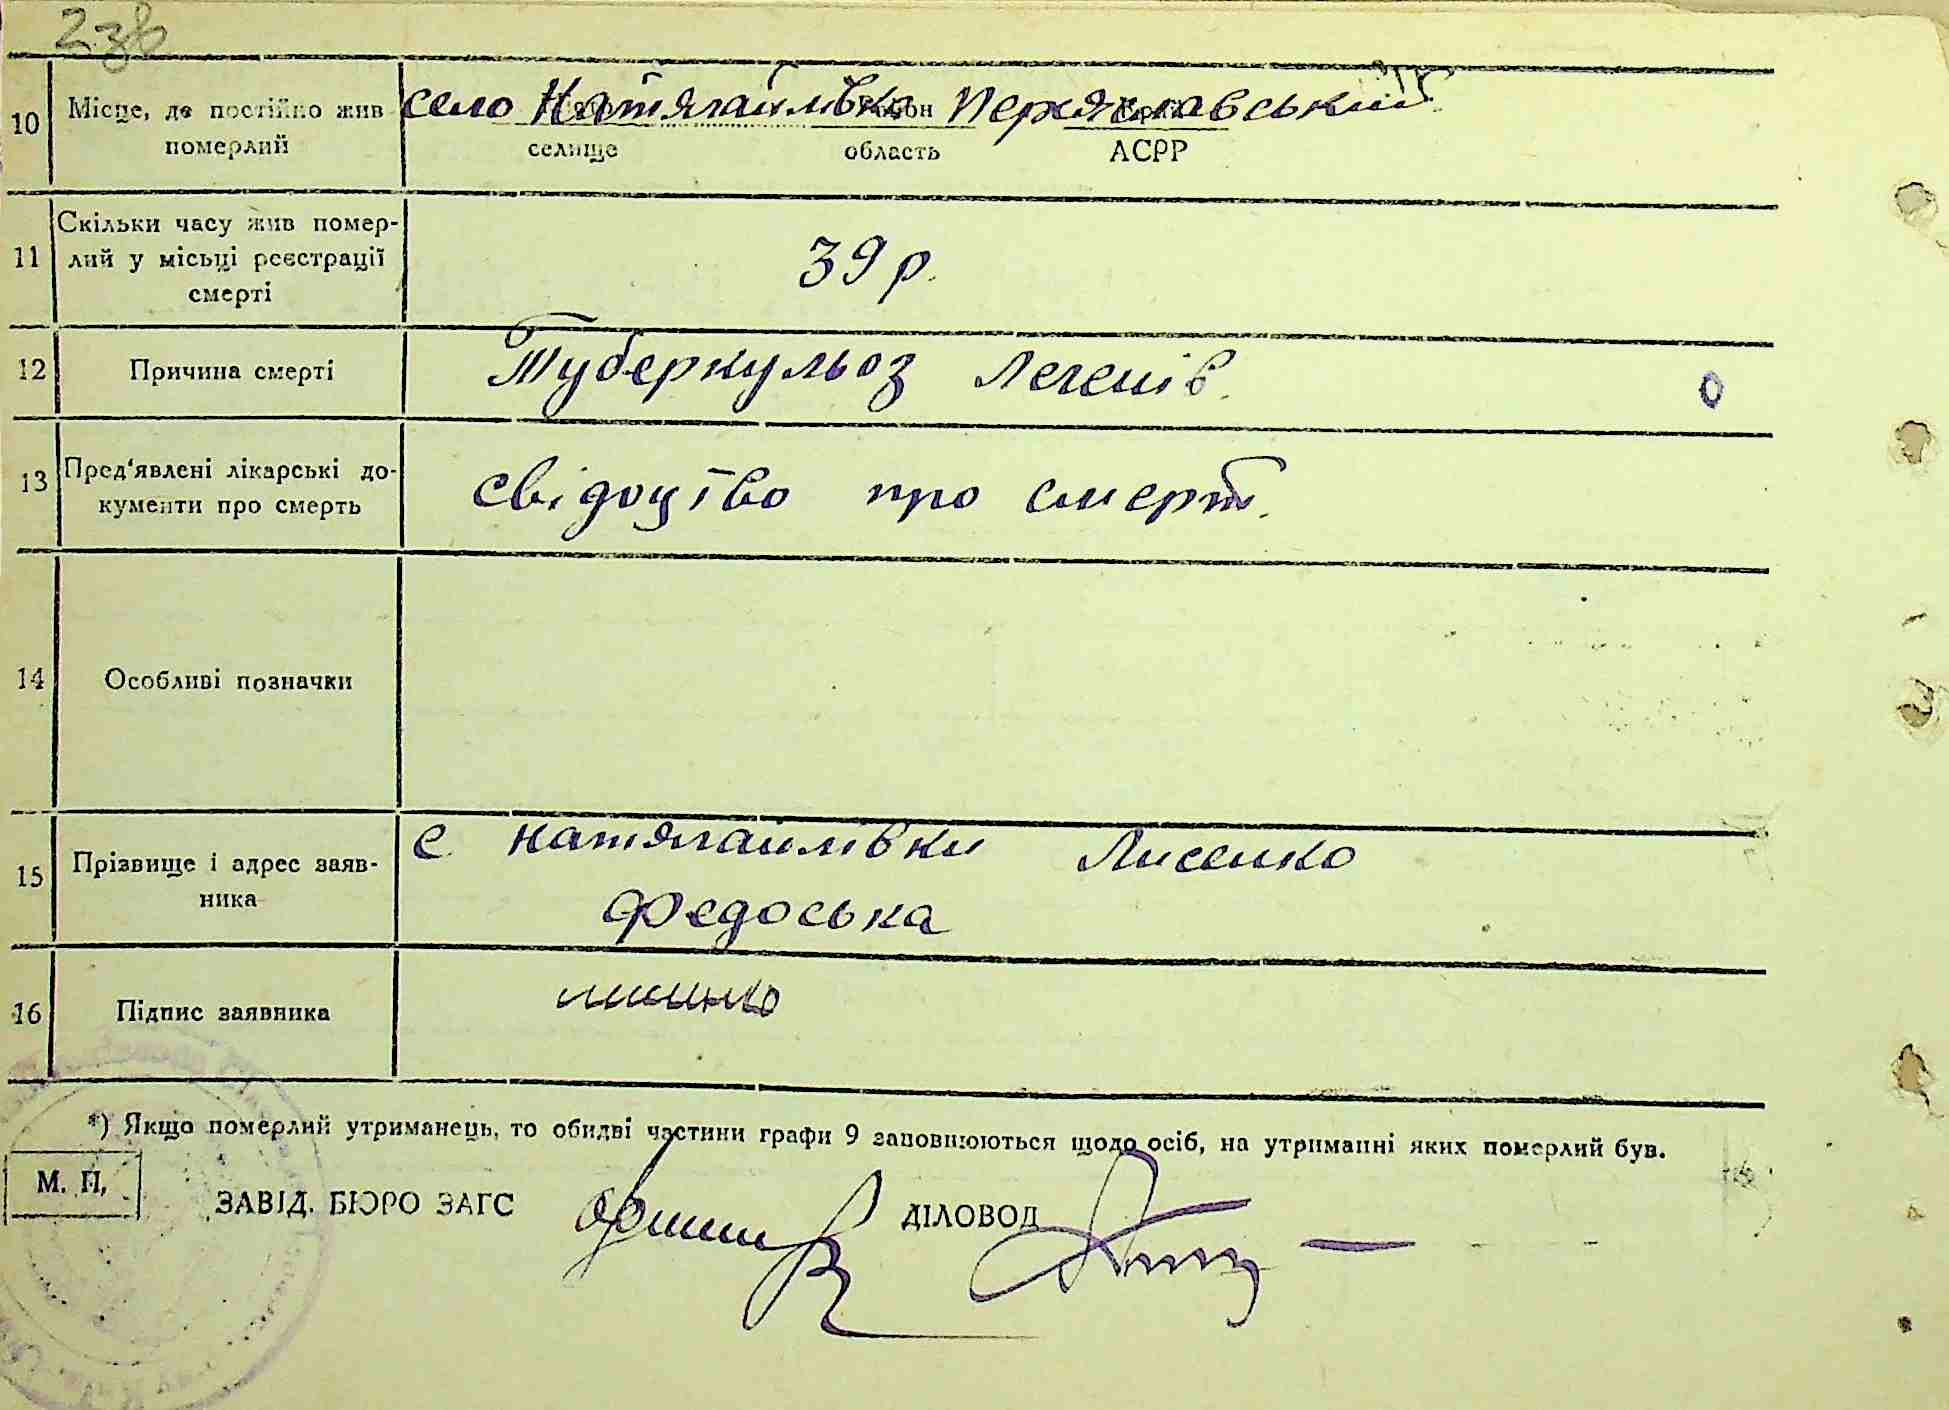 238
10 Місце, де постійно жив село Натягайлівка район Переяславський
померлий селище область АСРР
11 Скільки часу жив помер-
лий у місьці реєстрації 39 р.
смерті
12 Причина смерті Туберкульоз Легенів.
13 Пред'явлені лікарські до- свідоцтво про смерть.
кументи про смерть
14 Особливі позначки
15 Прізвище і адрес заяв- с Натягайлівки Лисенко
ника Федоська
16 Підпис заявника
*) Якщо померлий утриманець, то обидві частини графи 9 заповнюються щодо осіб, на утриманні яких померлий був.
М. П.
ЗАВІД. БЮРО ЗАГС ДІЛОВОД